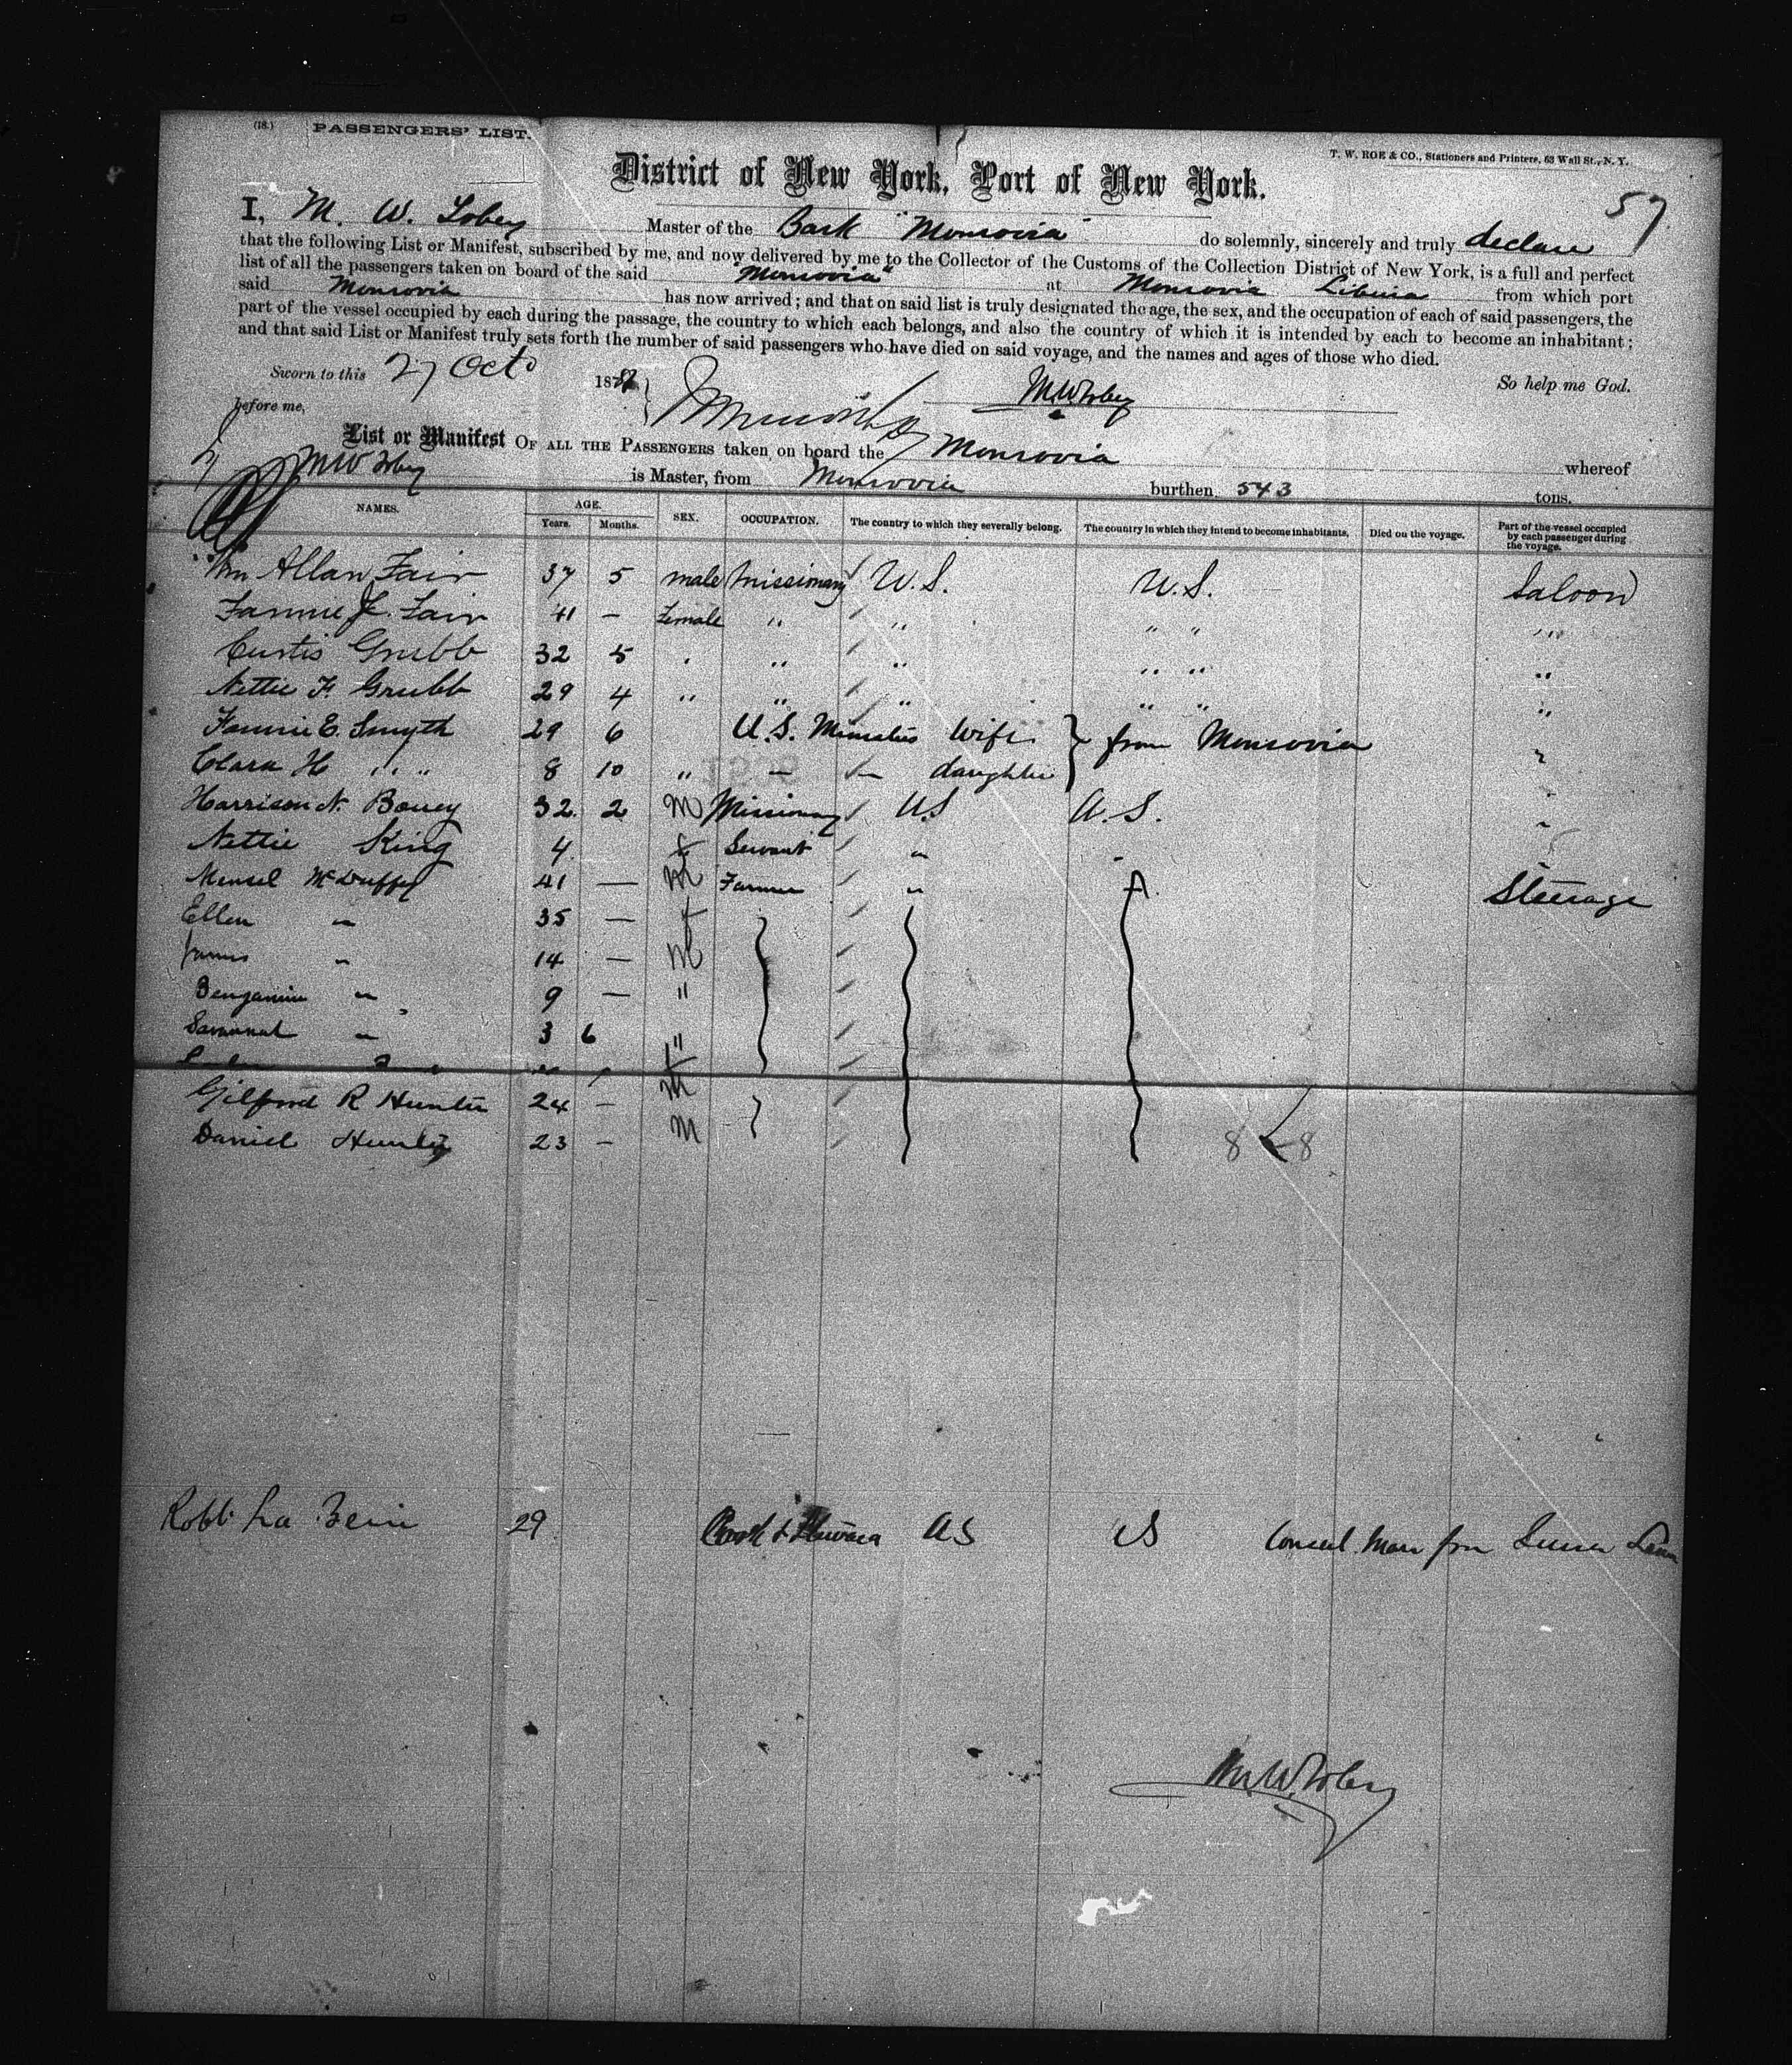 (18.) PASSENGERS' LIST.
T. W. ROE & CO., Stationers and Printers, 63 Wall St., N. Y.
District of New York, Port of New York.
57
I, M. W. Tobey Master of the Bark "Monrovia" do solemnly, sincerely and truly declare
that the following List or Manifest, subscribed by me, and now delivered by me to the Collector of the Customs of the Collection District of New York, is a full and perfect
list of all the passengers taken on board of the said "Monrovia" at Monrovia Liberia from which port
said Monrovia has now arrived; and that on said list is truly designated the age, the sex, and the occupation of each of said passengers, the
part of the vessel occupied by each during the passage, the country to which each belongs, and also the country of which it is intended by each to become an inhabitant;
and that said List or Manifest truly sets forth the number of said passengers who have died on said voyage, and the names and ages of those who died.
Sworn to this 27 Octo 18 So help me God.
before me, M W Tobey
List or Manifest OF ALL THE PASSENGERS taken on board the Monrovia whereof
M W Tobey is Master, from Monrovia burthen 543 tons.
NAMES. AGE. Years. Months. SEX. OCCUPATION. The country to which they severally belong. The country in which they intend to become inhabitants. Died on the voyage. Part of the vessel occupied by each passenger during the voyage.
Wm Allan Fair 37 5 male Missionary U.S. U.S. Saloon
Fannie J. Fair 41 — Female " " " " "
Curtis Grubb 32 5 " " " " " "
Nettie F. Grubb 29 4 " " " " " "
Fannie E. Smyth 29 6 U.S. Ministers Wife } from Monrovia "
Clara H " " 8 10 " — — daughter "
Harrison N. Bouey 32 2 M Missionary U.S U.S. "
Nettie King 4 f Servant " " "
Mensel McDuffey 41 — M Farmer " Steerage
Ellen " 35 — f
James " 14 — M
Benjamin " 9 — "
Savannah " 3 6 "
Gilford R Hunter 24 — M
Daniel Hunter 23 — M 8 8
Robt La Bein 29 Cook & Steward US US Consul Man from Sierra Leone
M. W. Tobey